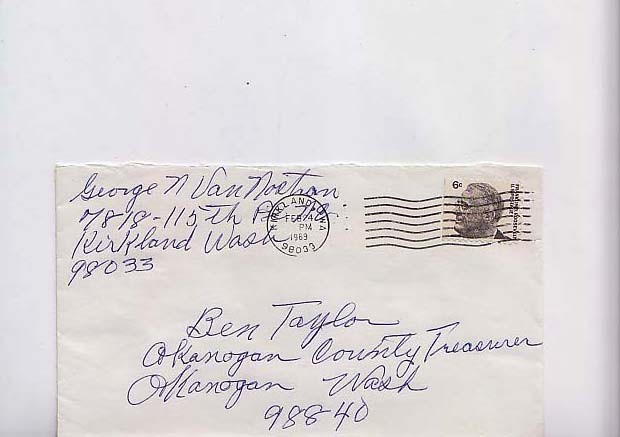 George N Van Nostran
7818-115th
Kirkland Wash
98033
KIRKLAND, WA
FEB 24
PM
1969
98033
6c
Ben Taylor
Okanogan County Treasurer
Okanogan Wash
98840